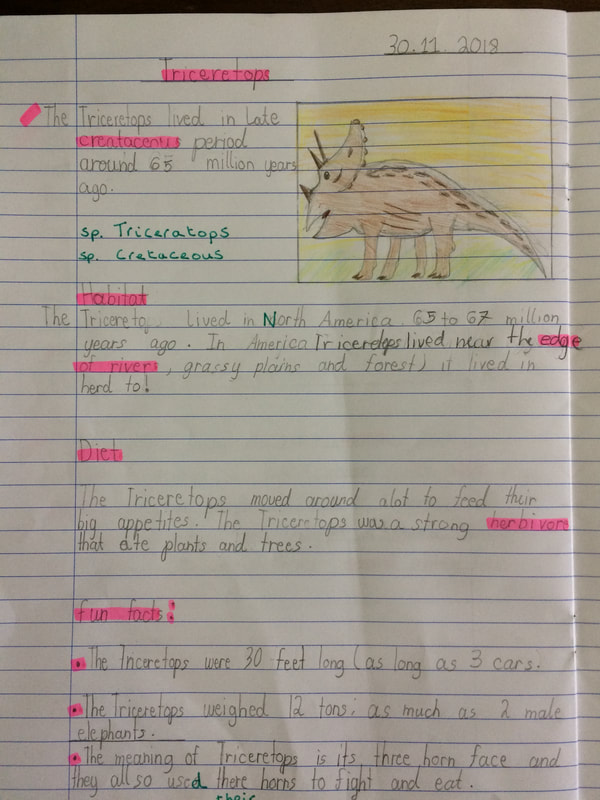 30.11 2018
Triceretops
The Triceretops lived in Late
creataceous period
around 65 million years
ago.
sp. Triceratops
sp. Cretaceous
Habitat
The Triceretop lived in North America 65 to 67 million
years ago. In America Triceretops lived near the edge
of rivers, grassy plains and forest) it lived in
herd to!
Diet
The Triceretops moved around alot to feed their
big appetites. The Triceretops was a strong herbivore
that ate plants and trees.
fun facts:
• The Triceretops were 30 feet long (as long as 3 cars.
• The Triceretops weighed 12 tons; as much as 2 male
elephants.
• The meaning of Triceretops is its three horn face and
they allso used there horns to fight and eat.
their